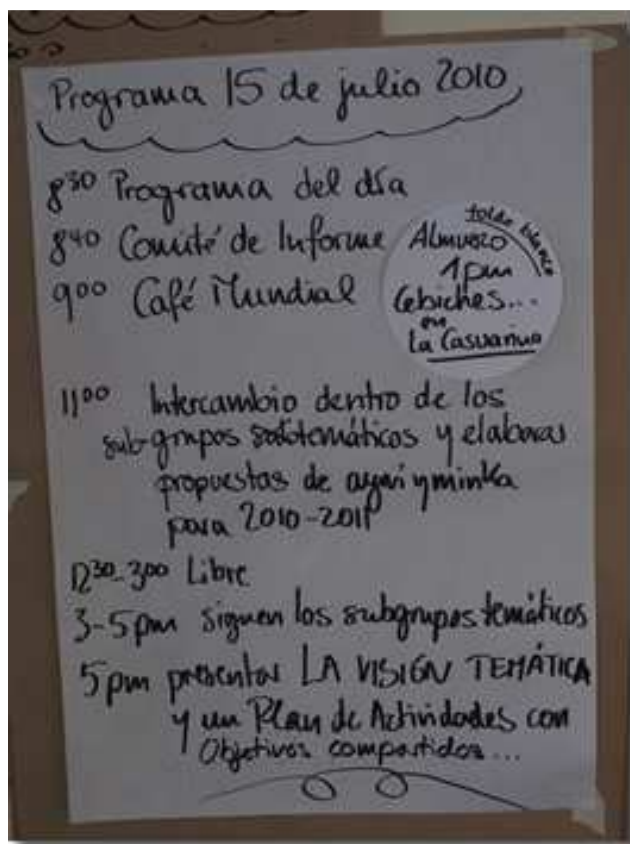 Programa 15 de julio 2010
8³⁰ Programa del día
8⁴⁰ Comité de Informe
9⁰⁰ Café Mundial
toldo blanco
Almuerzo
1pm
Cebiches...
en
La Casuarina
11⁰⁰ Intercambio dentro de los
sub-grupos temáticos y elaborar
propuestas de ayni y minka
para 2010-2011
12³⁰-3⁰⁰ Libre
3-5pm siguen los subgrupos temáticos
5pm presentar LA VISIÓN TEMÁTICA
y un Plan de Actividades con
Objetivos compartidos...